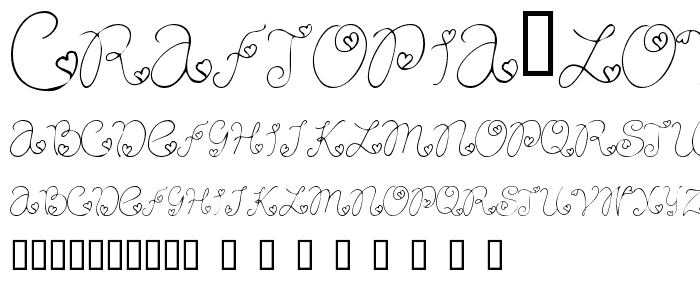 CRAFTOPIA▯LO
ABCDEFGHIJKLMNOPQRSTU
ABCDEFGHIJKLMNOPQRSTUVWXYZ
▯▯▯▯▯▯▯▯▯▯ ▯ ▯ ▯ ▯ ▯ ▯ ▯ ▯